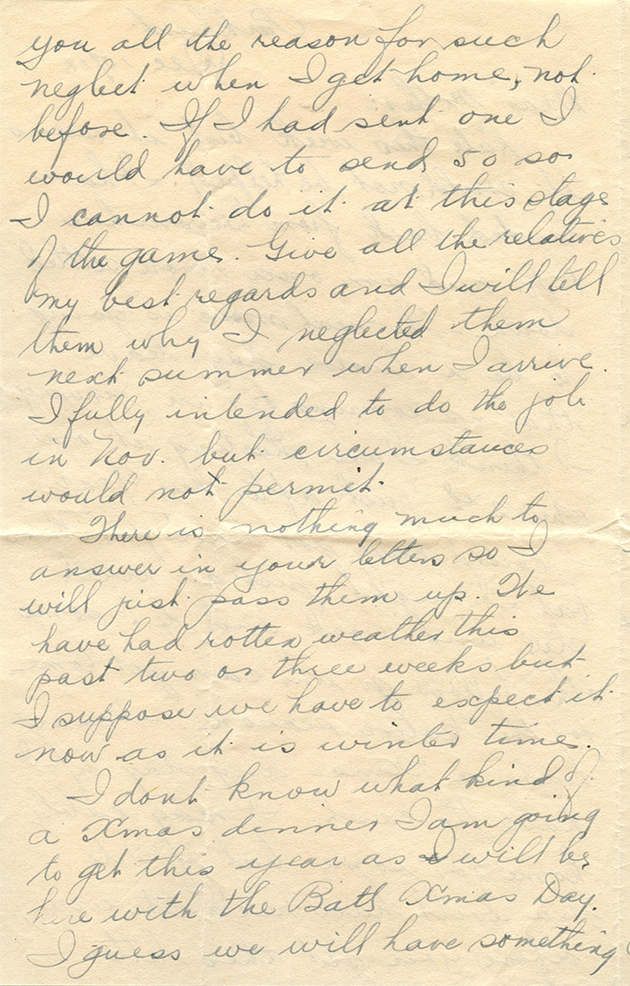 you all the reason for such
neglect when I get home, not
before. If I had sent one I
would have to send 50 so
I cannot do it at this stage
of the game. Give all the relatives
my best regards and I will tell
them why I neglected them
next summer when I arrive.
I fully intended to do the job
in Nov. but circumstances
would not permit.
There is nothing much to
answer in your letters so I
will just pass them up. We
have had rotten weather this
past two or three weeks but
I suppose we have to expect it
now as it is winter time.
I dont know what kind of
a Xmas dinner I am going
to get this year as I will be
here with the Bath Xmas Day.
I guess we will have something